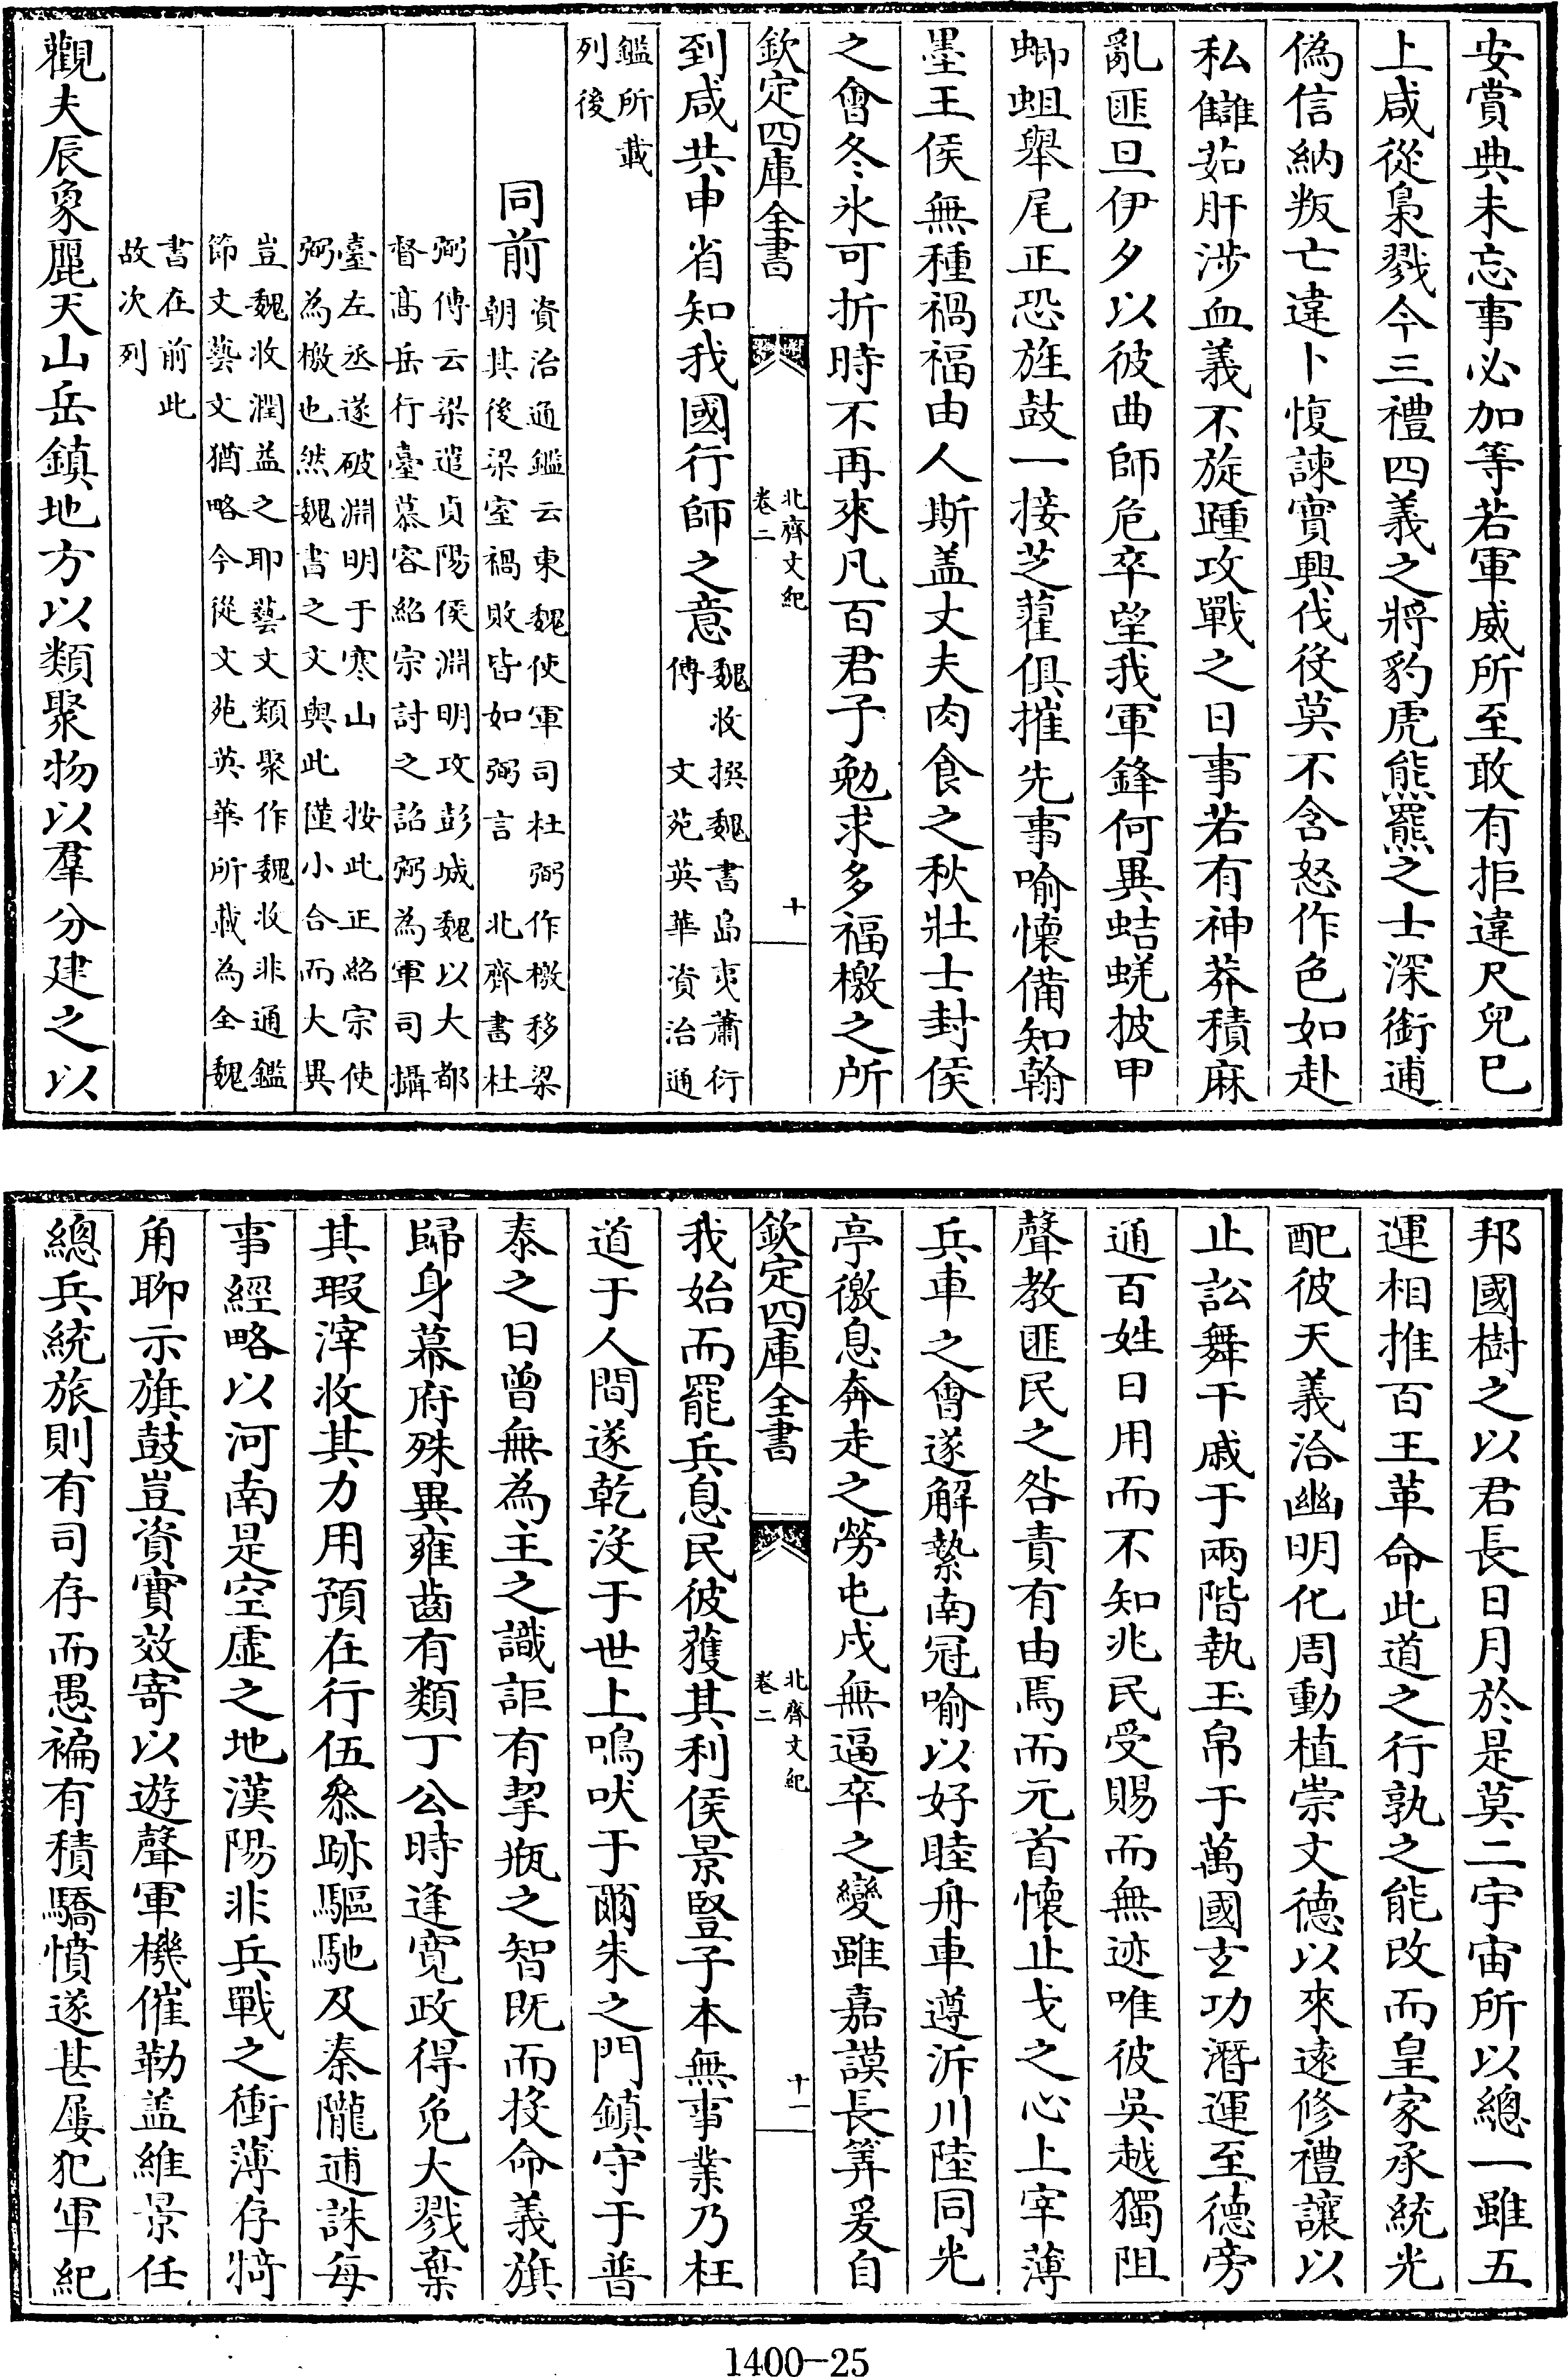 安賞典未忘事必加等若軍威所至敢有拒違尺兕巳
上咸從梟戮今三禮四義之將豹虎熊羆之士深銜逋
偽信納叛亡違卜愎諫實興伐役莫不含怒作色如赴
私讎茹肝涉血義不旋踵攻戰之日事若有神莽積麻
亂匪旦伊夕以彼曲師危卒望我軍鋒何異蛣蜣披甲
蝍蛆舉尾正恐旌鼓一接芝藿俱摧先事喻懷備知翰
墨王侯無種禍福由人斯盖丈夫肉食之秋壯士封侯
之會冬氷可折時不再來凡百君子勉求多福檄之所
欽定四庫全書
北齊文紀
卷二
十
到咸共申省知我國行師之意
魏收撰魏書島夷蕭衍
傳 文苑英華資治通
鑑所載
列後
同前
資治通鑑云東魏使軍司杜弼作檄移梁
朝其後梁室禍敗皆如弼言 北齊書杜
弼傳云梁遣貞陽侯淵明攻彭城魏以大都
督髙岳行臺慕容紹宗討之詔弼為軍司攝
臺左丞遂破淵明于寒山 按此正紹宗使
弼為檄也然魏書之文與此僅小合而大異
豈魏收潤益之耶藝文類聚作魏收非通鑑
節文藝文猶略今從文苑英華所載為全魏
書在前此
故次列
觀夫辰象麗天山岳鎮地方以類聚物以羣分建之以
邦國樹之以君長日月於是莫二宇宙所以總一雖五
運相推百王革命此道之行孰之能改而皇家承統光
配彼天義洽幽明化周動植崇文德以來遠修禮讓以
止訟舞干戚于兩階執玉帛于萬國玄功潛運至德旁
通百姓日用而不知兆民受賜而無迹唯彼吳越獨阻
聲教匪民之咎責有由焉而元首懷止戈之心上宰薄
兵車之會遂解縶南冠喻以好睦舟車遵泝川陸同光
亭徼息奔走之勞屯戍無逼卒之變雖嘉謨長筭爰自
欽定四庫全書
北齊文紀
卷二
十一
我始而罷兵息民彼獲其利侯景豎子本無事業乃枉
道于人間遂乾沒于世上鳴吠于爾朱之門鎮守于普
泰之日曾無為主之識詎有挈瓶之智既而投命義旗
歸身幕府殊異雍齒有類丁公時逢寛政得免大戮棄
其瑕滓收其力用預在行伍叅跡驅馳及秦隴逋誅每
事經略以河南是空虛之地漢陽非兵戰之衝薄存犄
角聊示旗鼓豈資實效寄以遊聲軍機催勒盖維景任
總兵統旅則有司存而愚褊有積驕憤遂甚屢犯軍紀
1400-25